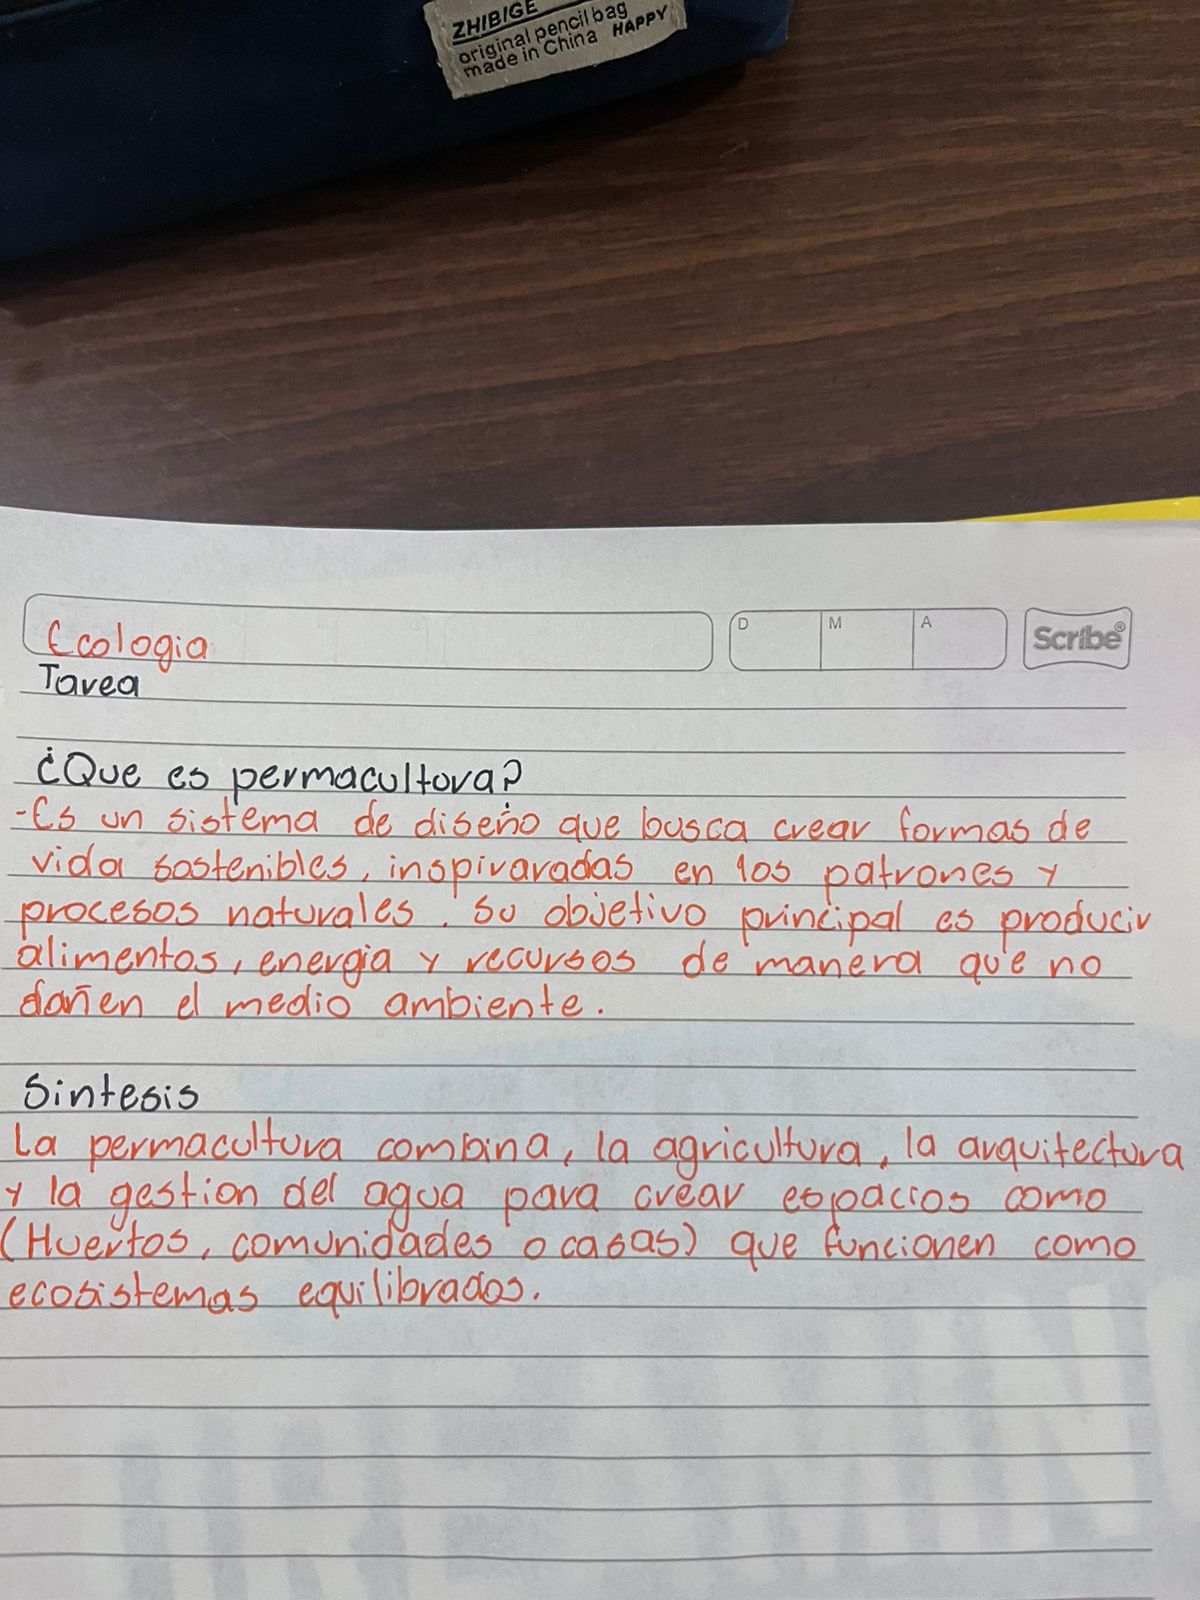 ZHIBIGE
original pencil bag
made in China HAPPY
Ecologia
D M A
Scribe®
Tarea
¿Que es permacultura?
-Es un sistema de diseño que busca crear formas de
vida sostenibles, inspivaradas en los patrones y
procesos naturales. Su objetivo principal es producir
alimentos, energia y recursos de manera que no
dañen el medio ambiente.
Sintesis
La permacultura combina, la agricultura, la arquitectura
y la gestion del agua para crear espacios como
(Huertos, comunidades o casas) que funcionen como
ecosistemas equilibrados.